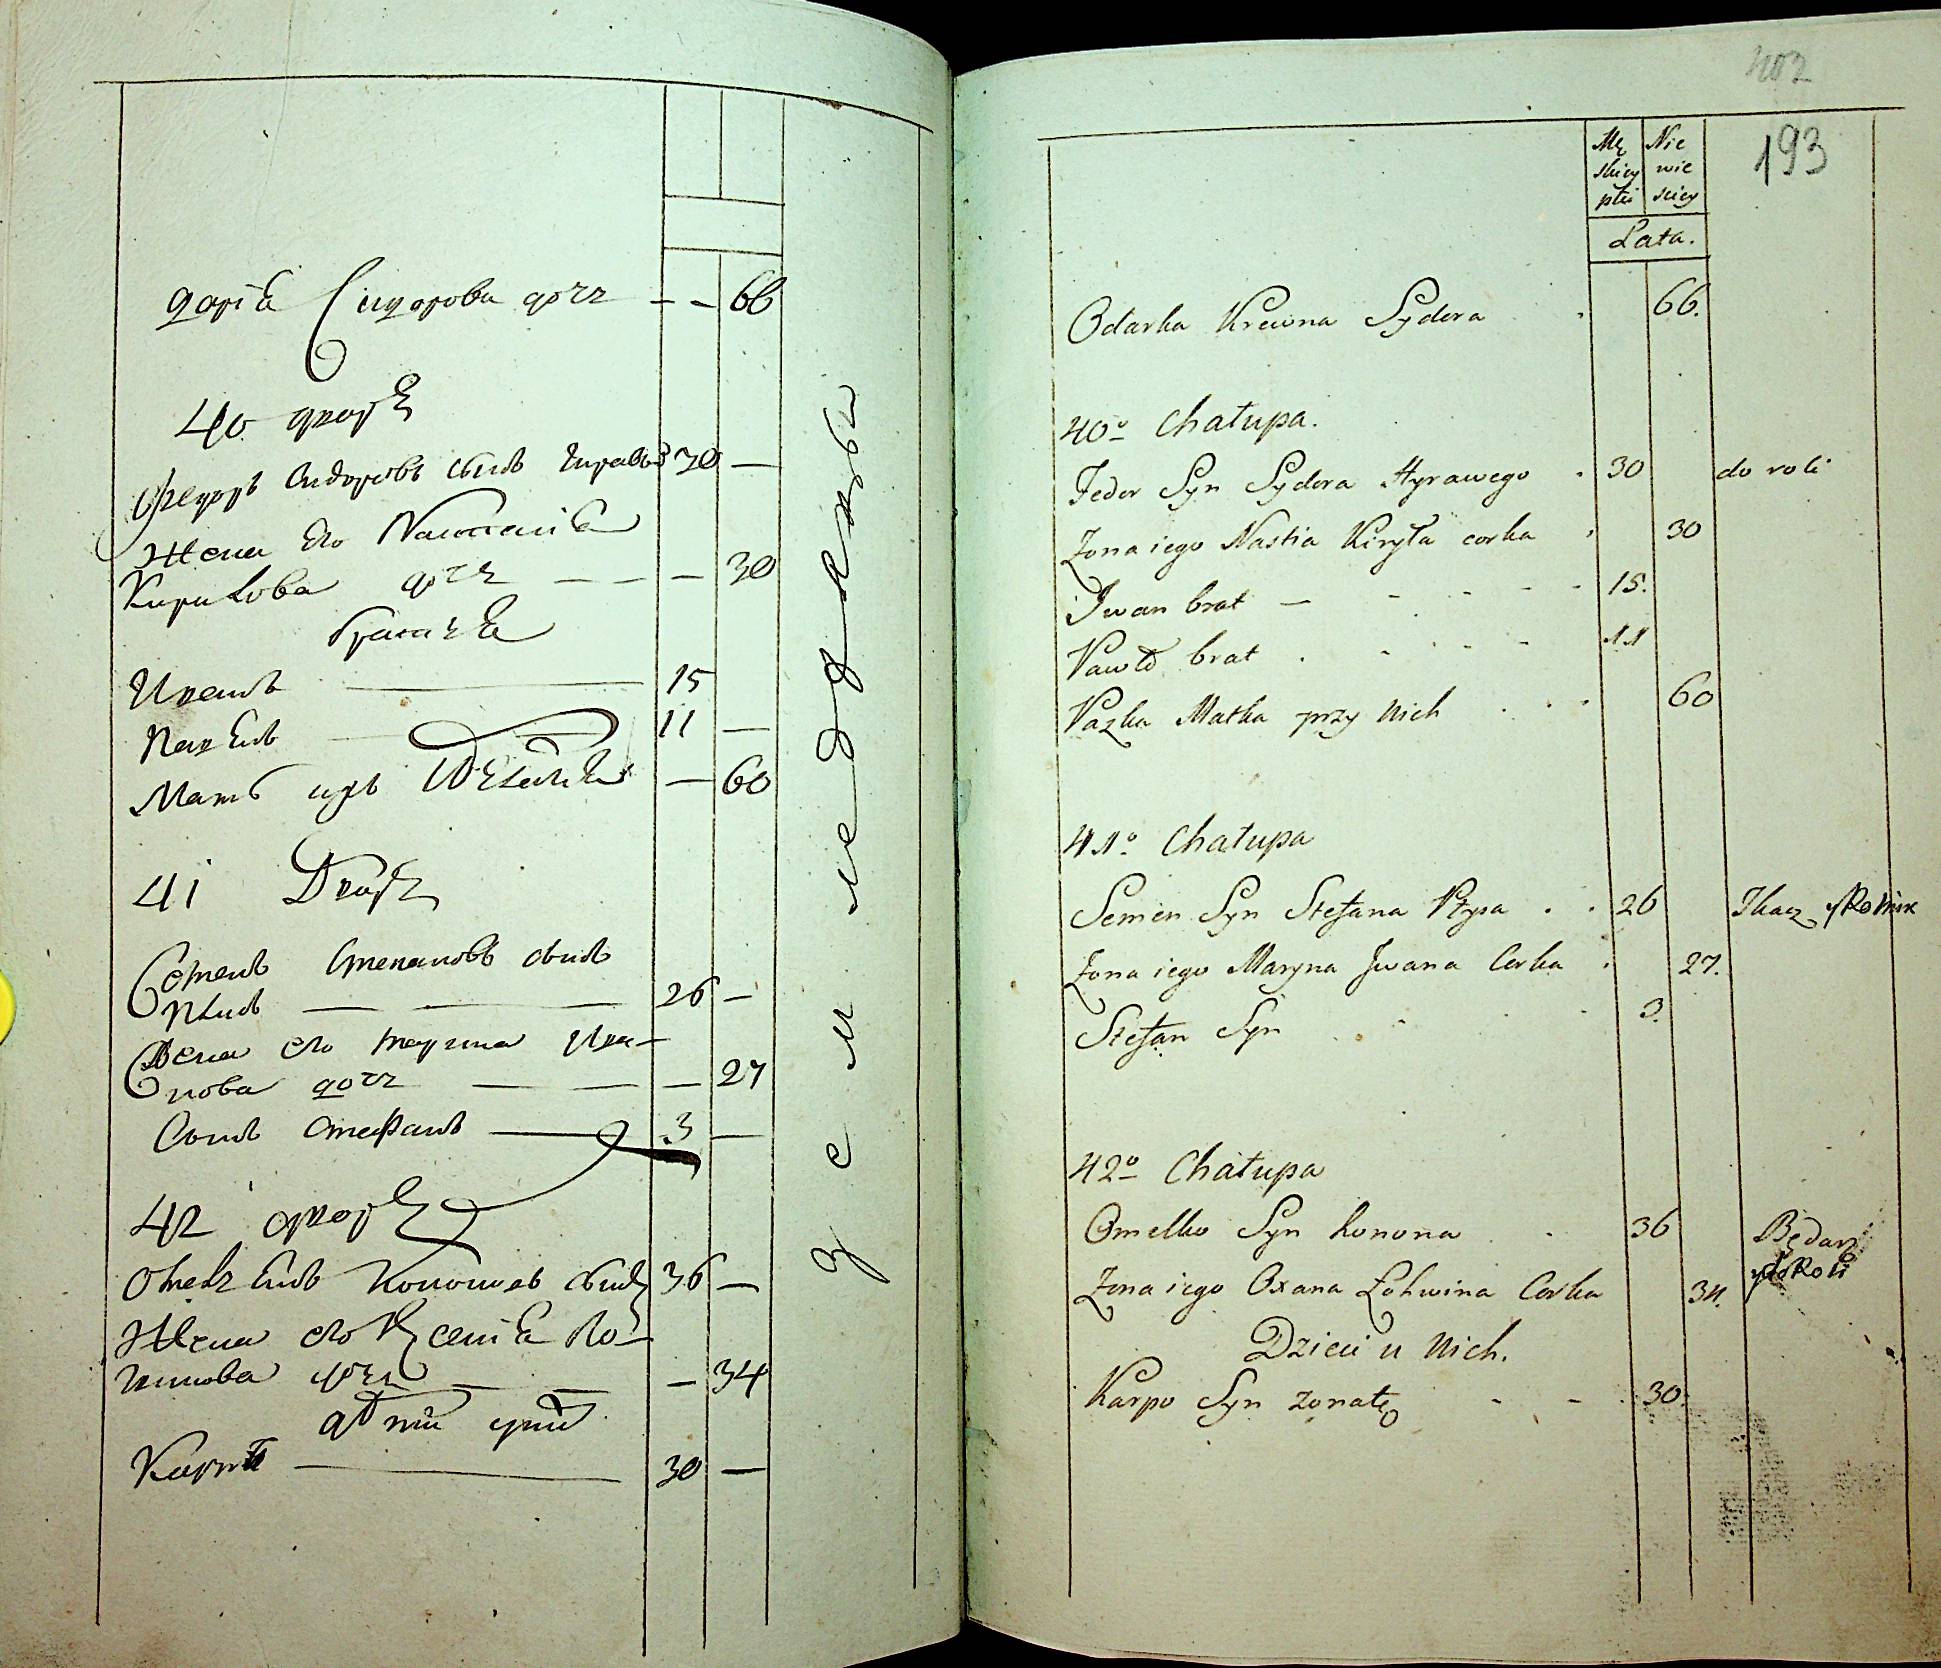 Дарїя Сидорова дочь — — 66
40 дворъ
Федоръ Сидоровъ сынъ Гиравый 30 —
Жена его Настасия
Кирилова дочь — — — 30
братья
Иванъ — 15
Павелъ — 11 —
Мать ихъ — 60
41 Дворъ
Семенъ Степановъ сынъ
— 26 —
Жена его Марина Ива-
нова дочь — — — 27
Сынъ Стефанъ — 3 —
42 дворъ
Омельянъ Кононовъ сынъ 36 —
Жена его Ксения Ло-
гинова дочь — — — 34
дети ихъ
Карпъ — 30 —
земледельцы
402
193
Mę Nie
skiey wie
płci sciey
Lata.
Odarka Krewna Sydora . 66.
40o Chałupa.
Fedor Syn Sydora Hyrawego . 30 do roli
Zona iego Nastia Kiryła corka . 30
Iwan brat — - - - - 15.
Pawło brat . - - - 11
Pazka Matka przy Nich . . . 60
41o Chałupa
Semen Syn Stefana Płysa . . 26 Tkacz y Rolnik
Zona iego Maryna Iwana Corka . 27.
Stefan Syn . - - 3.
42o Chałupa
Omelko Syn Konona . . 36 Bednarz
Zona iego Oxana Łohwina Corka 34. y do Roli
Dzieci u Nich.
Karpo Syn zonaty - - 30.